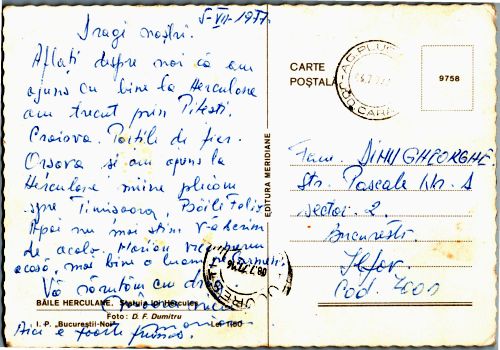 5-VII-1977
Dragi noștri.
Aflați despre noi că am
ajuns cu bine la Herculane
am trecut prin Pitești.
Craiova. Porțile de fier.
Orșova și am ajuns la
Herculane mîine plecăm
spre Timișoara, Băile Felix
Apoi nu mai știm vă scriem
de acolo. Marian
acasă, mai bine o luam
Vă sărutăm cu drag
Aici e foarte frumos.
BĂILE HERCULANE. Statuia lui Hercules
Foto: D. F. Dumitru
I. P. „Bucureștii-Noi" Lei 1.60
EDITURA MERIDIANE
CARTE
POȘTALĂ
9758
Fam. DIMU GHEORGHE.
Str. Pascale Nr. 1
sector 2.
București
Ilfov.
Cod. 7001